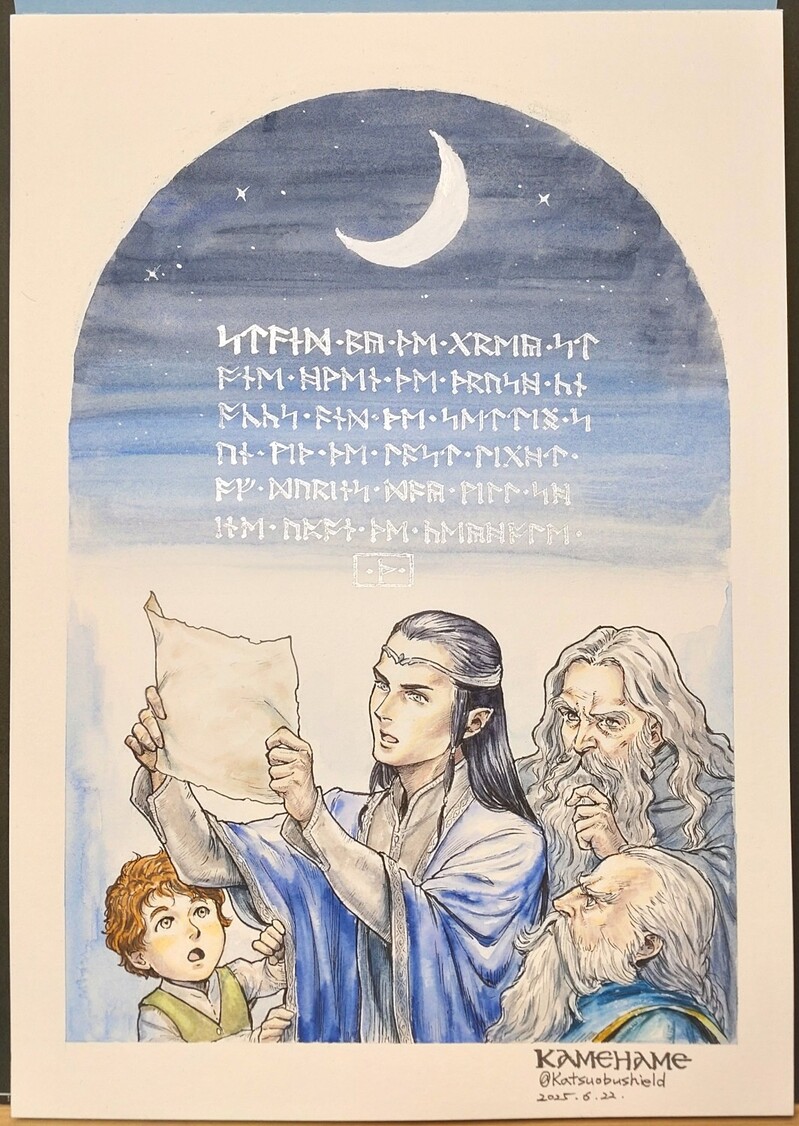 ᛋᛏᚪᚾᛞ·ᛒᚣ·ᚦᛖ·ᚷᚱᛖᚣ·ᛋᛏ
ᚩᚾᛖ·ᚻᚹᛖᚾ·ᚦᛖ·ᚦᚱᚢᛋᚻ·ᚳᚾ
ᚩᚳᚳᛋ·ᚪᚾᛞ·ᚦᛖ·ᛋᛖᛏᛏᛁᛝ·ᛋ
ᚢᚾ·ᚹᛁᚦ·ᚦᛖ·ᛚᚪᛋᛏ·ᛚᛁᚷᚻᛏ·
ᚩᚠ·ᛞᚢᚱᛁᚾᛋ·ᛞᚪᚣ·ᚹᛁᛚᛚ·ᛋᚻ
ᛁᚾᛖ·ᚢᛈᚩᚾ·ᚦᛖ·ᚳᛖᚣᚻᚩᛚᛖ·
·ᚦ·
KAMEHAME
@Katsuobushield
2025.6.22.